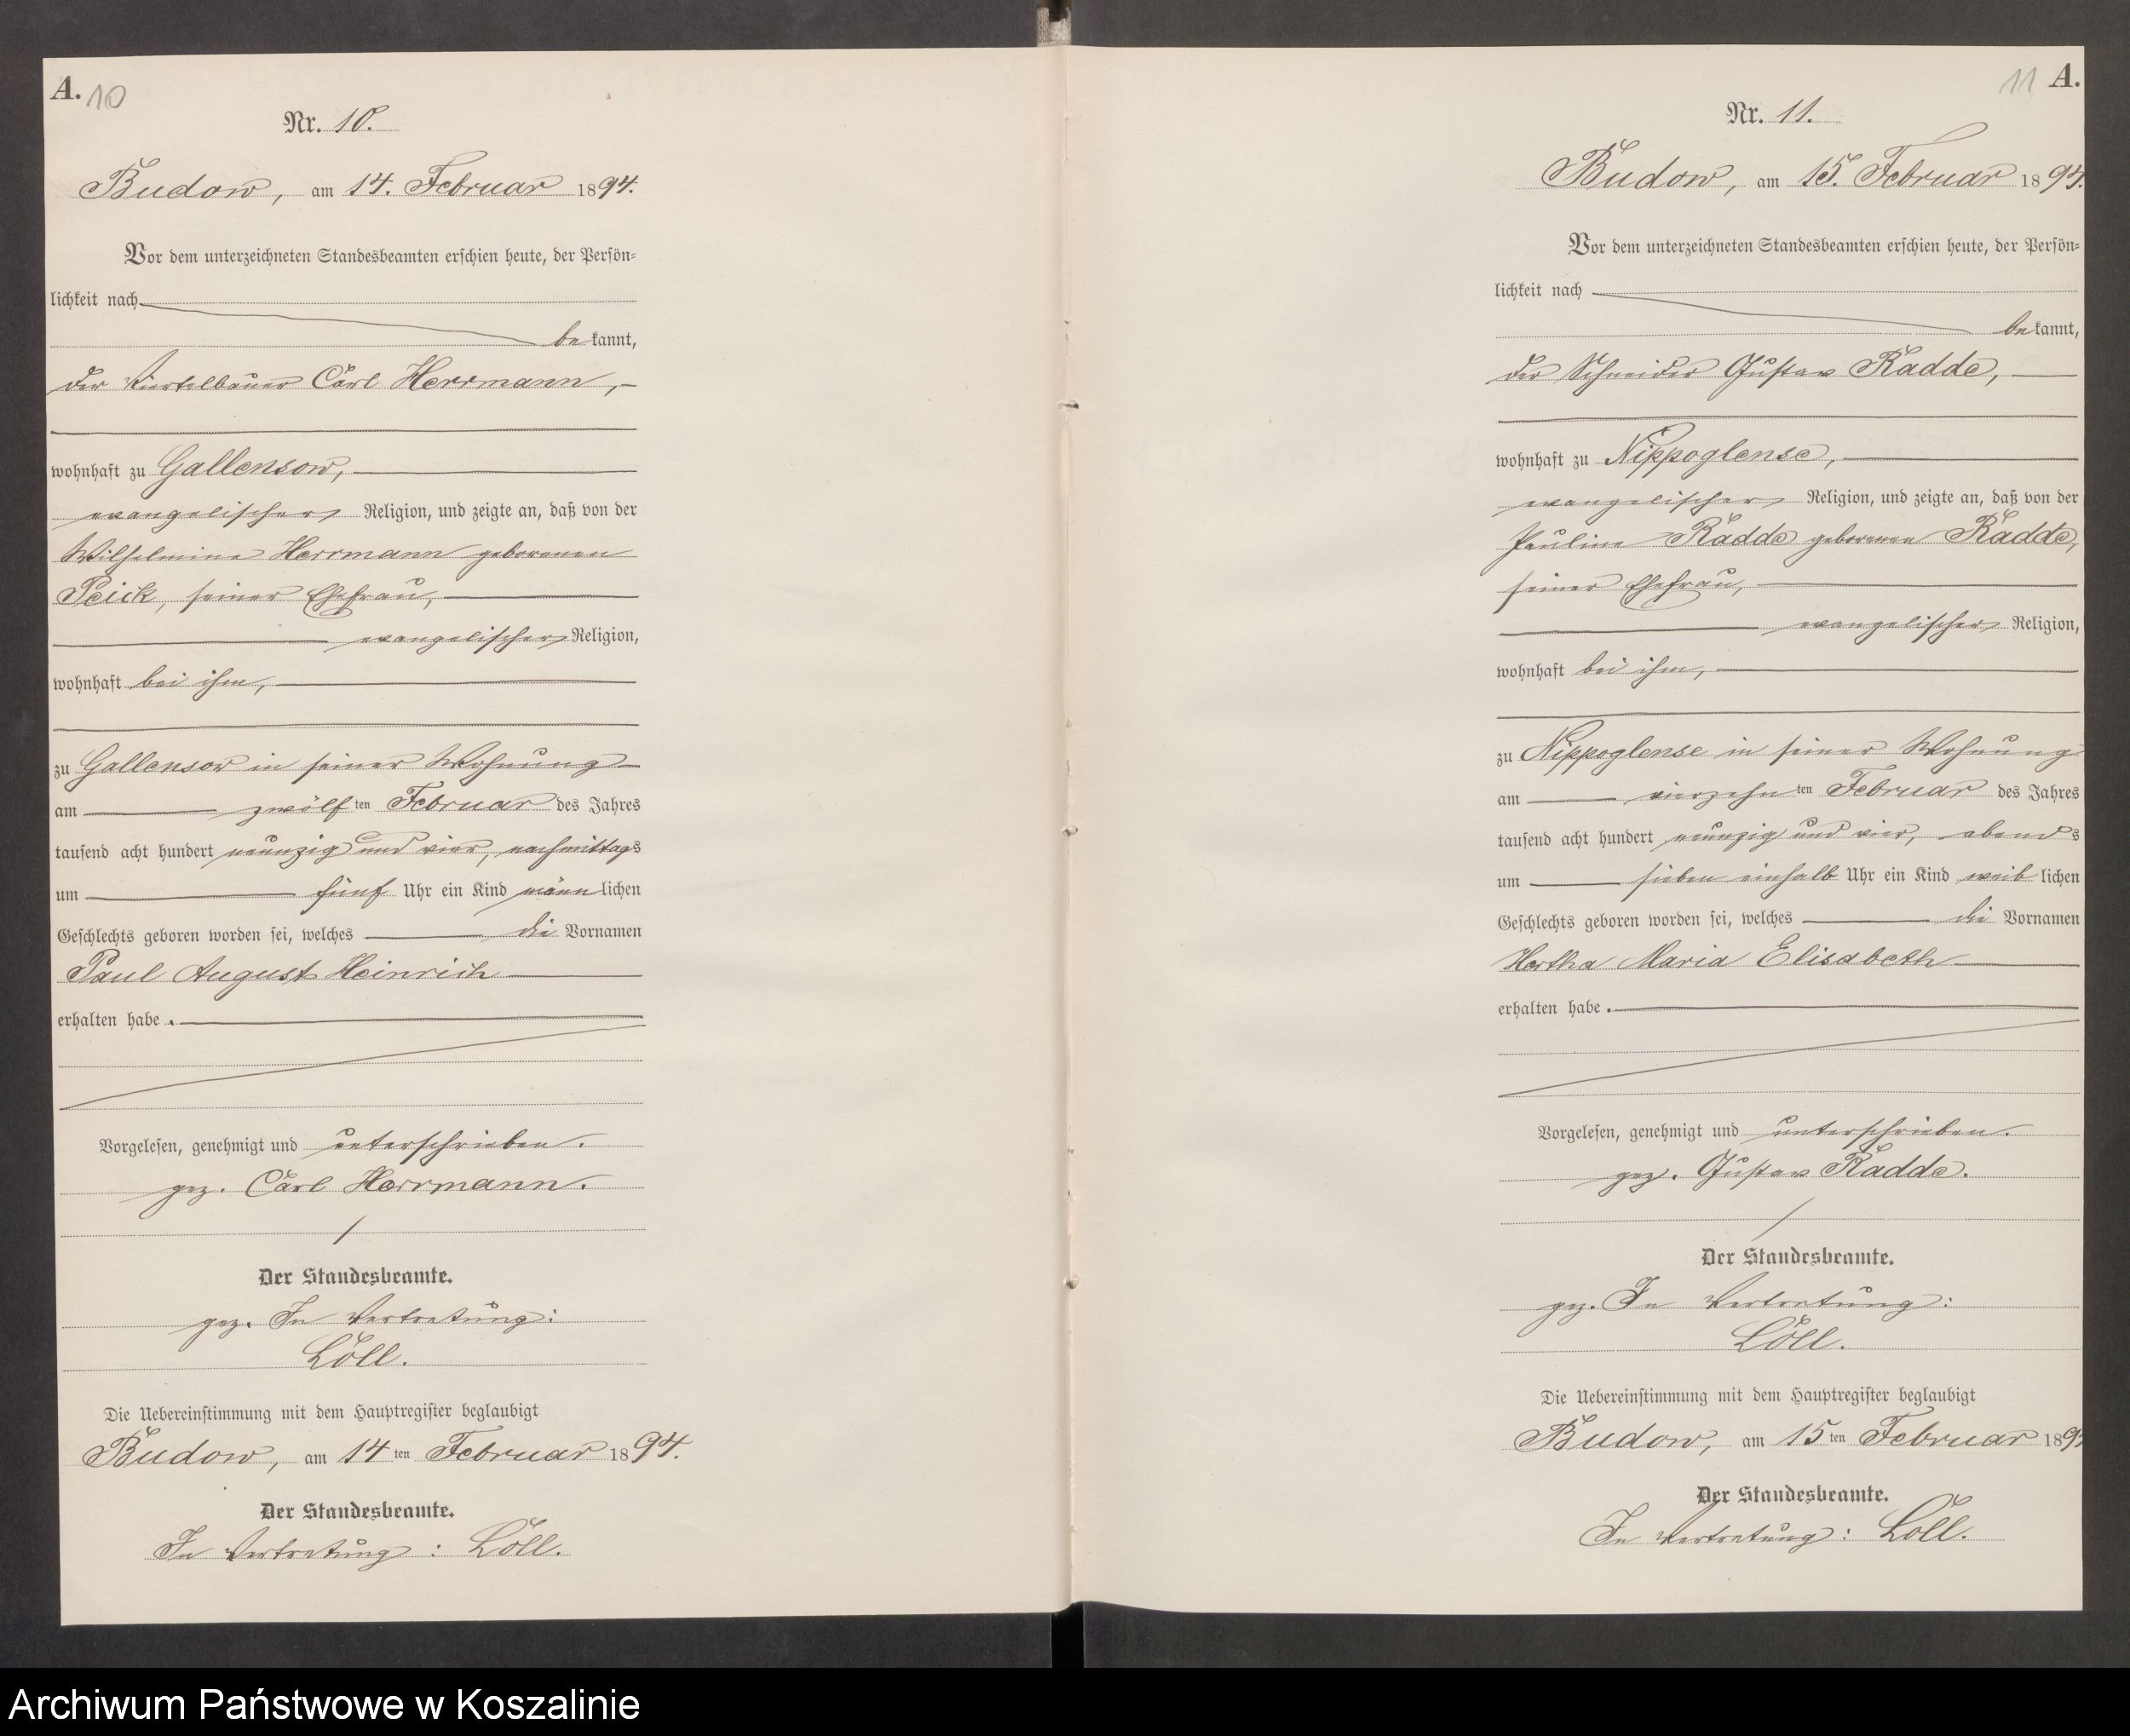 A. 10
Nr. 10.
Budow, am 14. Februar 1894.
Vor dem unterzeichneten Standesbeamten erschien heute, der Persön-
lichkeit nach
bekannt,
der Viertelbauer Carl Herrmann,
wohnhaft zu Gallensow,
evangelischer Religion, und zeigte an, daß von der
Wilhelmine Herrmann geborenen
Peick, seiner Ehefrau,
evangelischer Religion,
wohnhaft bei ihm,
zu Gallensow in seiner Wohnung
am zwölften Februar des Jahres
tausend acht hundert neunzig und vier, nachmittags
um fünf Uhr ein Kind männlichen
Geschlechts geboren worden sei, welches die Vornamen
Paul August Heinrich
erhalten habe.
Vorgelesen, genehmigt und unterschrieben.
gez. Carl Herrmann.
Der Standesbeamte.
gez. In Vertretung:
Löll.
Die Uebereinstimmung mit dem Hauptregister beglaubigt
Budow, am 14ten Februar 1894.
Der Standesbeamte.
In Vertretung: Löll.
11 A.
Nr. 11.
Budow, am 15. Februar 1894.
Vor dem unterzeichneten Standesbeamten erschien heute, der Persön-
lichkeit nach
bekannt,
der Schneider Gustav Radde,
wohnhaft zu Nippoglense,
evangelischer Religion, und zeigte an, daß von der
Pauline Radde geborenen Radde,
seiner Ehefrau,
evangelischer Religion,
wohnhaft bei ihm,
zu Nippoglense in seiner Wohnung
am vierzehnten Februar des Jahres
tausend acht hundert neunzig und vier, abends
um sieben einhalb Uhr ein Kind weiblichen
Geschlechts geboren worden sei, welches die Vornamen
Hertha Maria Elisabeth
erhalten habe.
Vorgelesen, genehmigt und unterschrieben.
gez. Gustav Radde.
Der Standesbeamte.
gez. In Vertretung:
Löll.
Die Uebereinstimmung mit dem Hauptregister beglaubigt
Budow, am 15ten Februar 189
Der Standesbeamte.
In Vertretung: Löll.
Archiwum Państwowe w Koszalinie